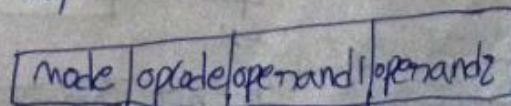 mode opcode operand1 operand2